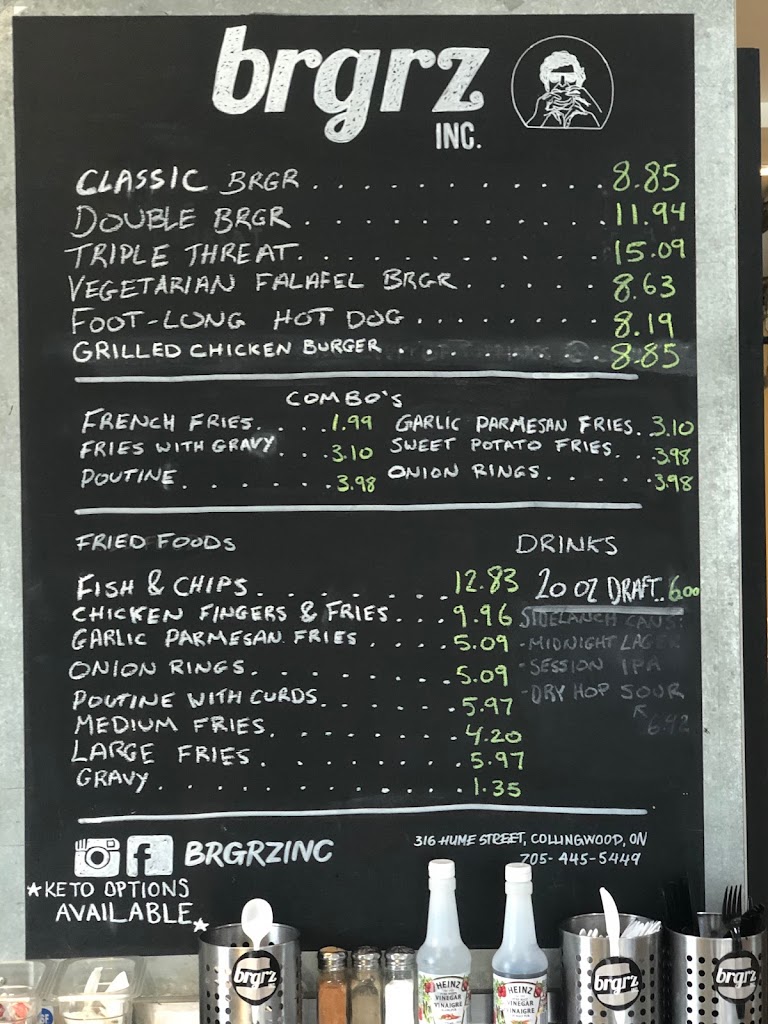 brgrz
INC.
CLASSIC BRGR . . . . . . . . . . . . 8.85
DOUBLE BRGR . . . . . . . . . . . . 11.94
TRIPLE THREAT . . . . . . . . . . . 15.09
VEGETARIAN FALAFEL BRGR . . . . . 8.63
FOOT-LONG HOT DOG . . . . . . . . 8.19
GRILLED CHICKEN BURGER . . . . . . . 8.85
COMBO'S
FRENCH FRIES . . . . 1.99 GARLIC PARMESAN FRIES . 3.10
FRIES WITH GRAVY . . . 3.10 SWEET POTATO FRIES . . . 3.98
POUTINE . . . . . . . 3.98 ONION RINGS . . . . . 3.98
FRIED FOODS DRINKS
FISH & CHIPS . . . . . . . 12.83 20 OZ DRAFT . 6.00
CHICKEN FINGERS & FRIES . . . 9.96 SIDELAUNCH CANS:
GARLIC PARMESAN FRIES . . . . 5.09 - MIDNIGHT LAGER
ONION RINGS . . . . . . . . 5.09 - SESSION IPA
POUTINE WITH CURDS . . . . . 5.97 - DRY HOP SOUR
MEDIUM FRIES . . . . . . . 4.20 6.92
LARGE FRIES . . . . . . . . 5.97
GRAVY . . . . . . . . . . . 1.35
BRGRZINC 316 HUME STREET, COLLINGWOOD, ON
705-445-5449
*KETO OPTIONS
AVAILABLE*
brgrz
HEINZ
VINEGAR
VINAIGRE
HEINZ
VINEGAR
VINAIGRE
brgrz
brgrz